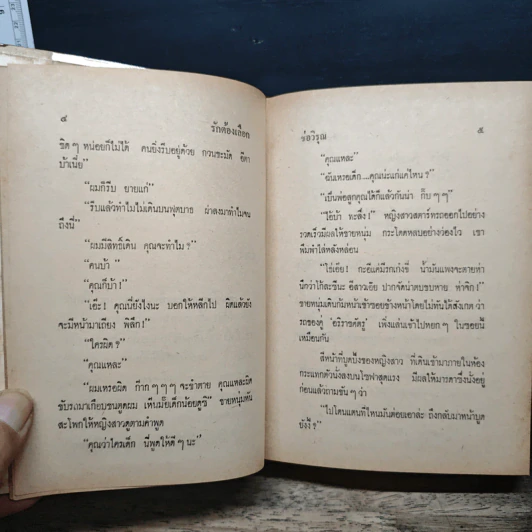 ๔ รักต้องเลือก
ชิดๆ หน่อยก็ไม่ได้ คนยิ่งรีบอยู่ด้วย กวนชะมัด อีตา
บ้าเนี่ย"
"ผมก็รีบ ยายแก่"
"รีบแล้วทำไมไม่เดินบนฟุตบาธ ผ่าลงมาทำไมจน
ถึงนี่"
"ผมมีสิทธิ์เดิน คุณจะทำไม ?"
"คนบ้า"
"คุณก็บ้า !"
"เอ๊ะ! คุณนี่ยังไงนะ บอกให้หลีกไป ผิดแล้วยัง
จะมีหน้ามาเถียง พิลึก !"
"ใครผิด ?"
"คุณแหละ"
"ผมเหรอผิด ก๊ากๆๆๆ จะขำตาย คุณแหละผิด
ขับรถมาเกือบชนตูดผม เห็นมั๊ยเด็กน้อยดูซี" ชายหนุ่มหัน
สะโพกให้หญิงสาวดูตามคำพูด
"คุณว่าใครเด็ก นี่พูดให้ดีๆ นะ"
ช่อวิรุณ ๕
"คุณแหละ"
"ฉันเหรอเด็ก....คุณน่ะแก่แค่ไหน ?"
"เป็นพ่อลูกคุณได้ก็แล้วกันน่า กั๊บๆๆ"
"ไอ้บ้า ทะลึ่ง!" หญิงสาวสตาร์ทรถออกไปอย่าง
รวดเร็วมีผลให้ชายหนุ่ม กระโดดหลบอย่างว่องไว เขา
พึมพำไล่หลังหล่อน
"ไอ้เอ๊ย! กะอีแค่มีรถเก๋งขี่ น้ำมันแพงจะตายห่า
นึกว่าโก้ละซีนะ อีสาวเอ๊ย ปากจัดน่าตบชบหาย ทำจิก!"
ชายหนุ่มเดินก้มหน้าเข้าซอยข้างหน้าโดยไม่ทันได้สังเกต ว่า
รถของคู่ 'อริราชศัตรู' เพิ่งแล่นเข้าไปหยกๆ ในซอยนี้
เหมือนกัน
สีหน้าที่บูดบึ้งของหญิงสาว ที่เดินเข้ามาภายในห้อง
กระแทกตัวนั่งลงบนโซฟาสุดแรง มีผลให้มารดาซึ่งนั่งอยู่
ก่อนแล้วถามขึ้นๆ ว่า
"ไปโดนแตนที่ไหนมันต่อยเอาล่ะ ถึงกลับมาหน้าบูด
ยังงี้ ?"